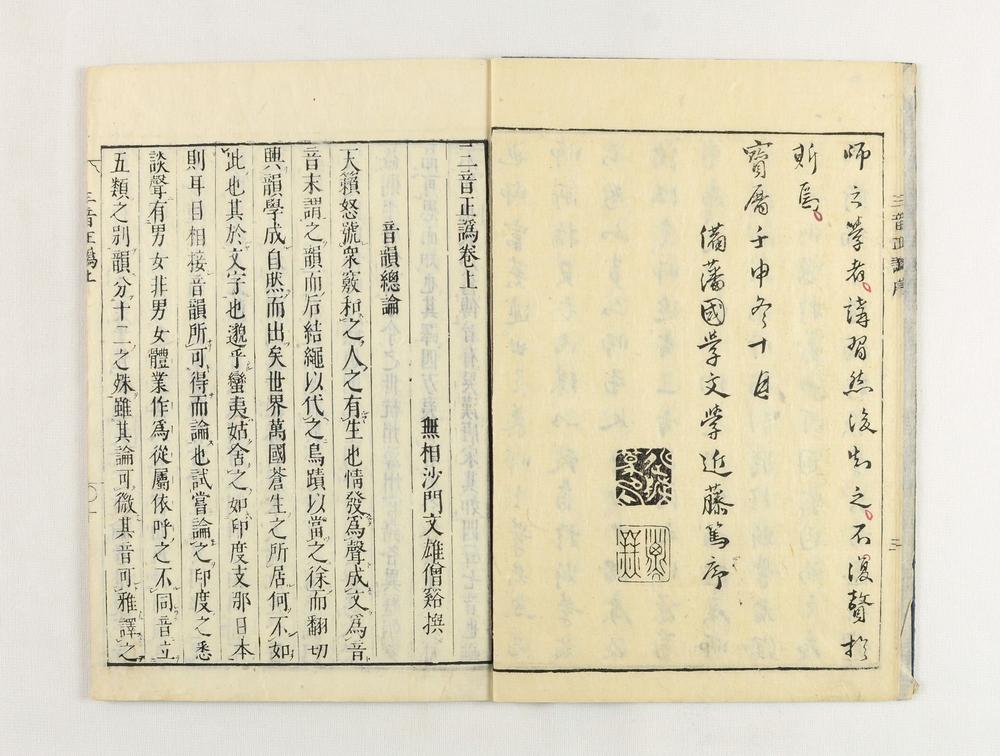 三音正譌序
師之學者。講習然後知之。不復贅於
斯焉。
寶曆壬申冬十月
備藩國學文學近藤篤序
三音正譌卷上
無相沙門文雄僧谿撰
音韻總論
天籟怒號衆竅和之人之有生也情發爲聲成文爲音
音末謂之韻而后結繩以代之鳥蹟以當之徐而翻切
興韻學成自然而出矣世界萬國蒼生之所居何不如
此也其於文字也邈乎蠻夷姑舍之如印度支那日本
則耳目相接音韻所可得而論也試嘗論之印度之悉
談聲有男女非男女體業作爲從屬依呼之不同音立
五類之別韻分十二之殊雖其論可微其音可雅譯之
三音正譌上